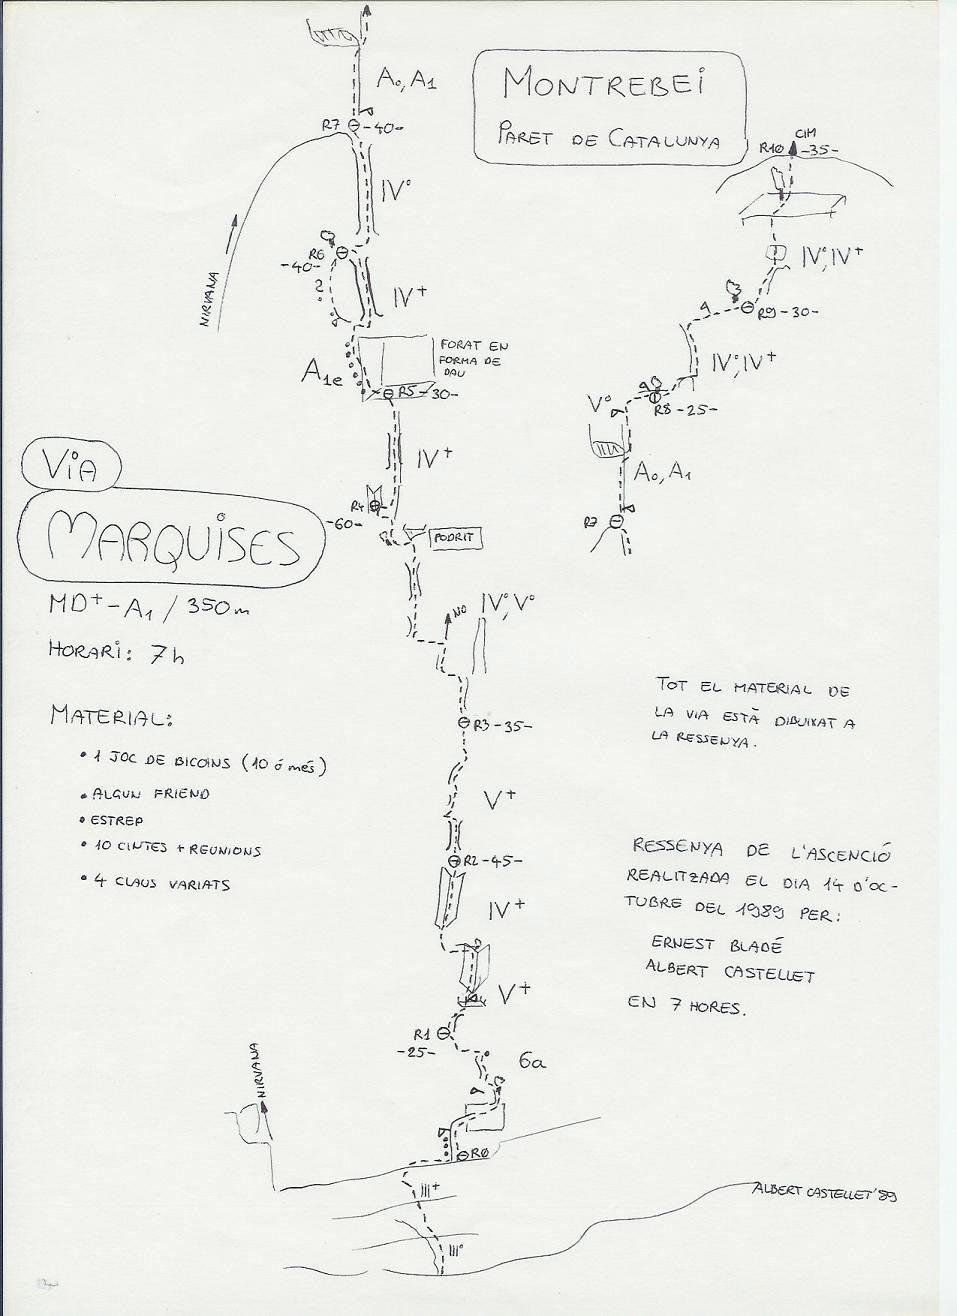 MONTREBEI
PARET DE CATALUNYA
A0, A1
R7 -40-
IV°
NIRVANA
R6
-40-
?
IV+
FORAT EN
FORMA DE
DAU
A1e
R5 -30-
IV+
R4
-60-
PODRIT
IV°, V°
NO
R3 -35-
V+
R2 -45-
IV+
V+
R1
-25-
6a
NIRVANA
R0
III+
III°
CIM
R10 -35-
IV°, IV+
R9 -30-
IV°, IV+
R8 -25-
V°
A0, A1
R7
VIA
MARQUISES
MD+ - A1 / 350m
HORARI: 7h
MATERIAL:
• 1 JOC DE BICOINS (10 ó més)
• ALGUN FRIEND
• ESTREP
• 10 CINTES + REUNIONS
• 4 CLAUS VARIATS
TOT EL MATERIAL DE
LA VIA ESTÀ DIBUIXAT A
LA RESSENYA.
RESSENYA DE L'ASCENCIÓ
REALITZADA EL DIA 14 D'OC-
TUBRE DEL 1989 PER:
ERNEST BLADÉ
ALBERT CASTELLET
EN 7 HORES.
ALBERT CASTELLET '89